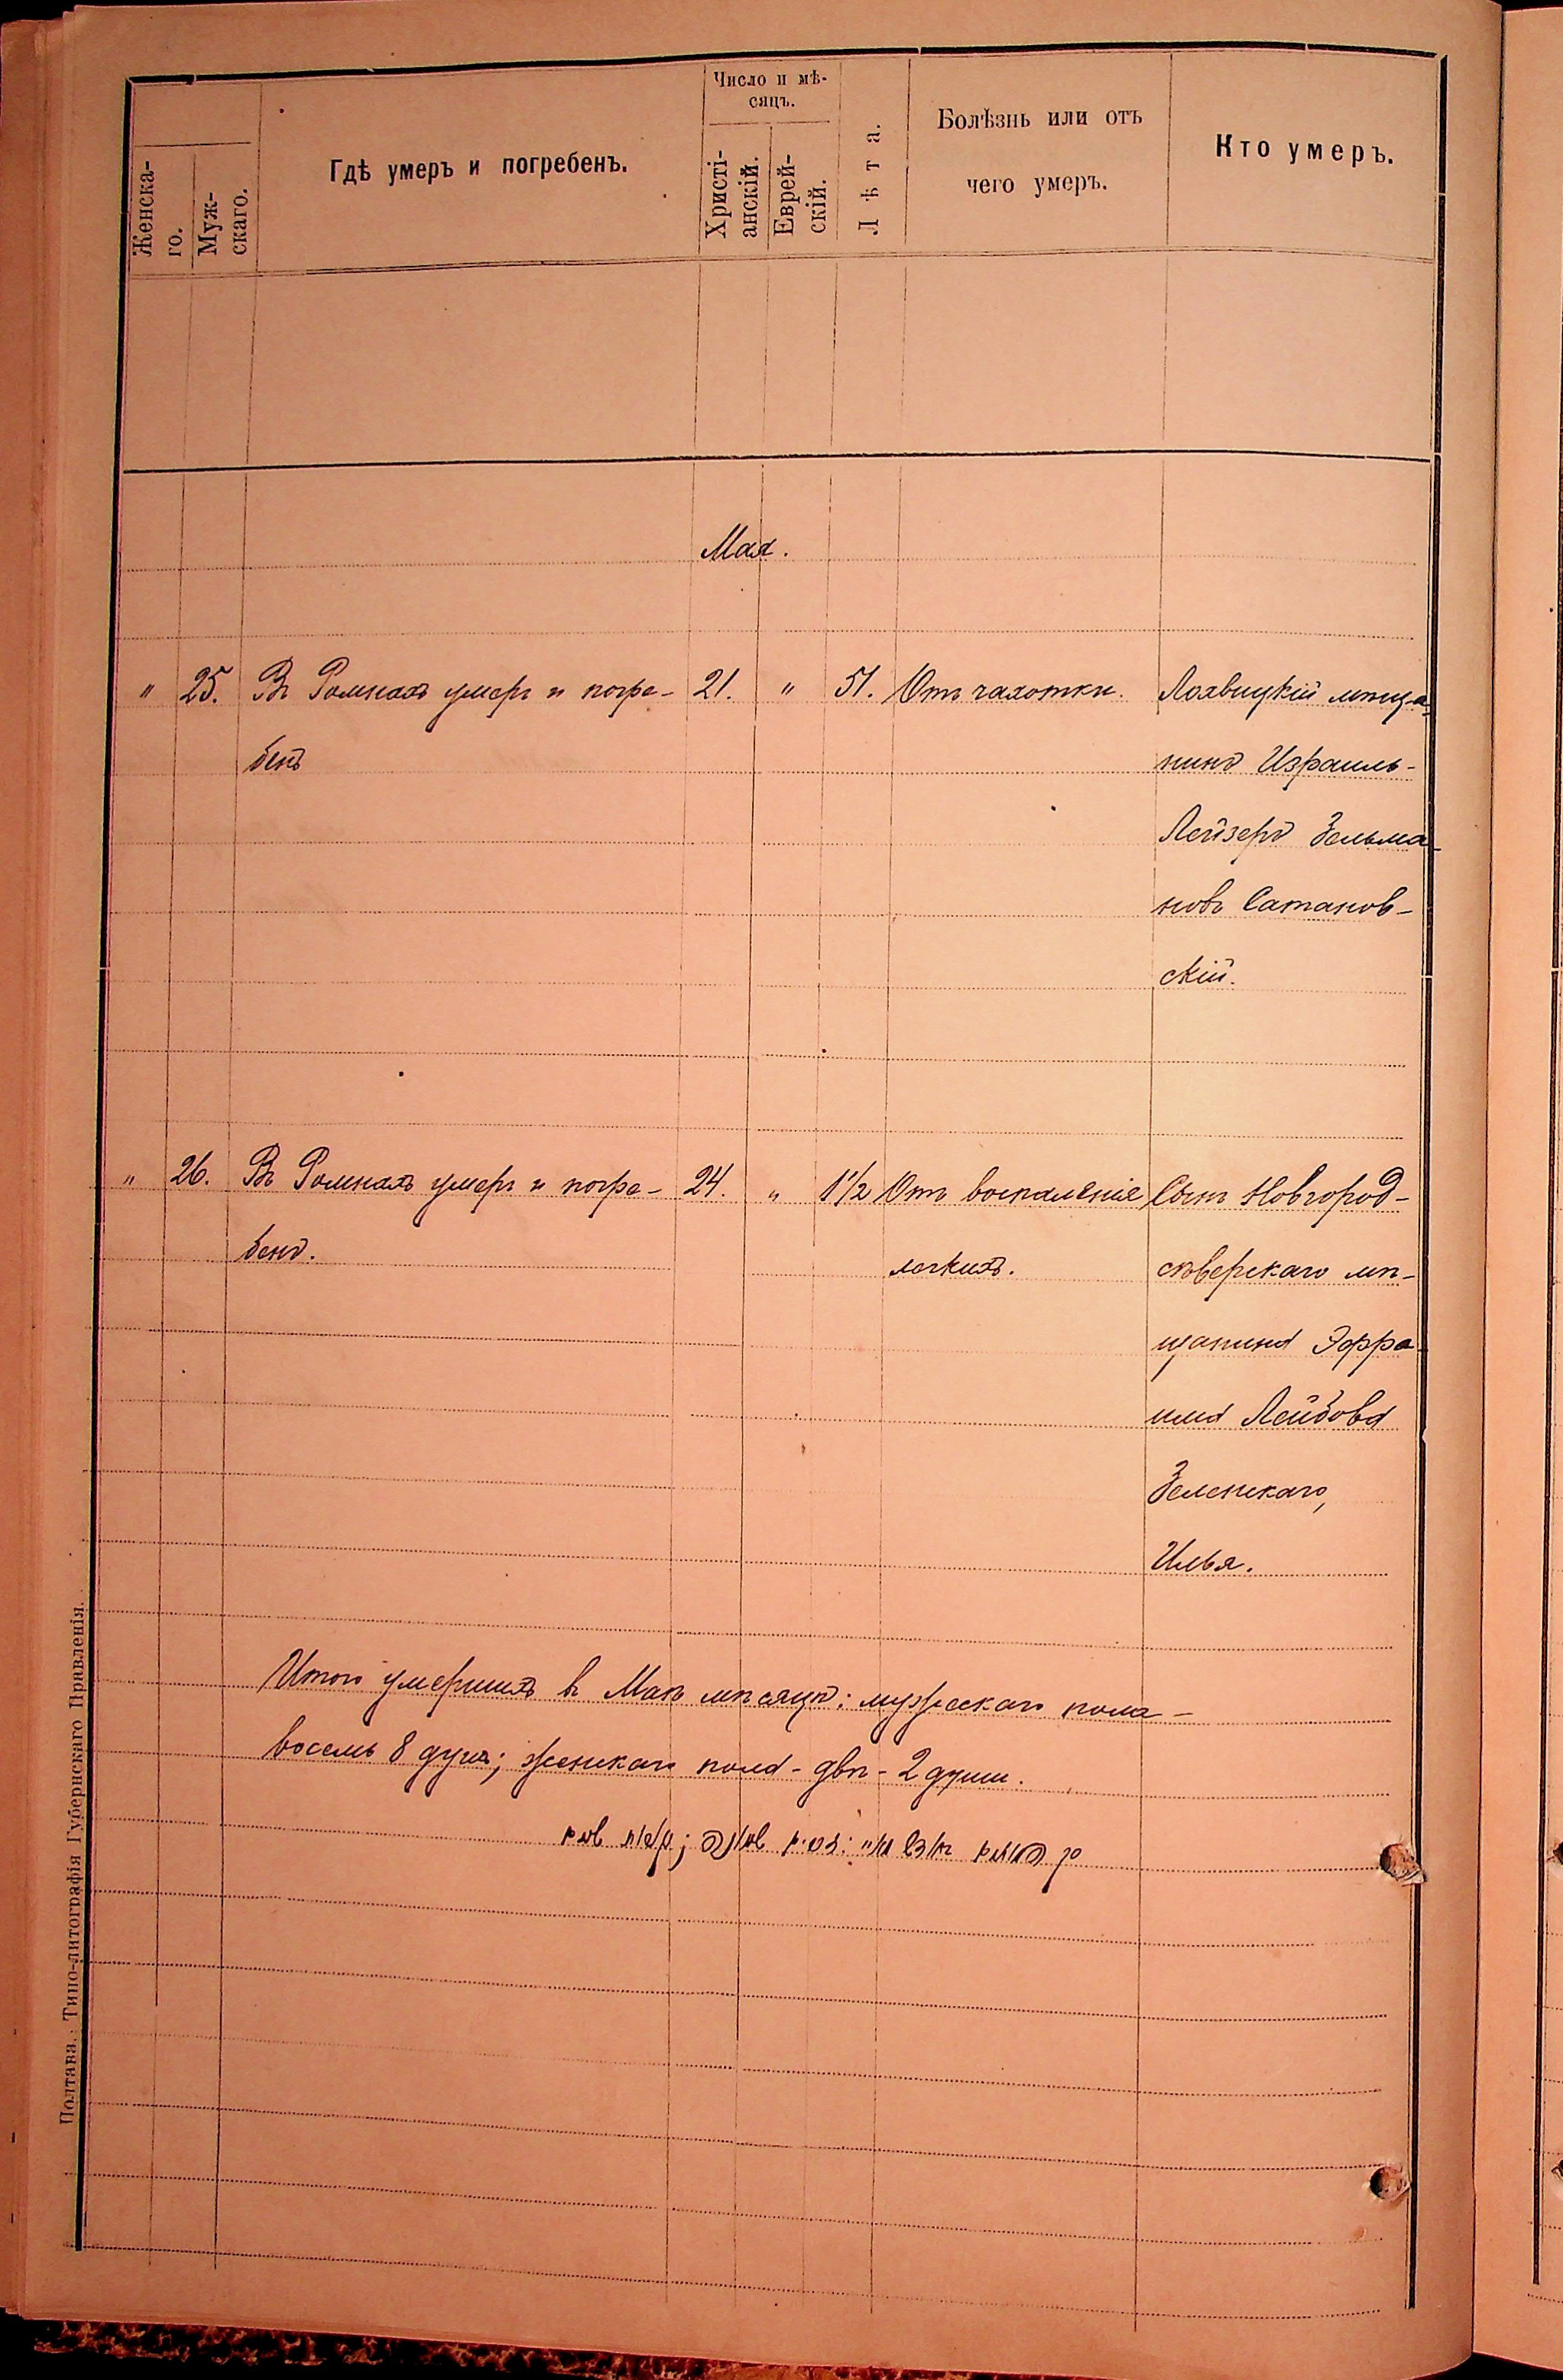 Число и мѣ-
сяцъ.
Женска-
го.
Муж-
скаго.
Гдѣ умеръ и погребенъ.
Христі-
анскій.
Еврей-
скій.
Лѣта.
Болѣзнь или отъ
чего умеръ.
Кто умеръ.
Мая.
" 25. Въ Ромнахъ умеръ и погре- 21. " 51. Отъ чахотки. Лохвицкій мѣща-
бенъ нинъ Израиль-
Лейзеръ Зельма-
новъ Сатанов-
скій.
" 26. Въ Ромнахъ умеръ и погре- 24. " 1½ Отъ воспаленіе Сынъ Новгород-
бенъ. легкихъ. сѣверскаго мѣ-
щанина Эфра-
има Лейбова
Зеленскаго,
Илья.
Итого умершихъ въ Маѣ мѣсяцѣ: мужескаго пола -
восемь 8 душъ; женскаго пола - двѣ - 2 души.
Полтава. Типо-литографія Губернскаго Правленія.